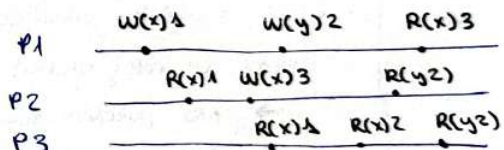 W(x)1 W(y)2 R(x)3
P1
R(x)1 W(x)3 R(y2)
P2
R(x)1 R(x)2 R(y2)
P3